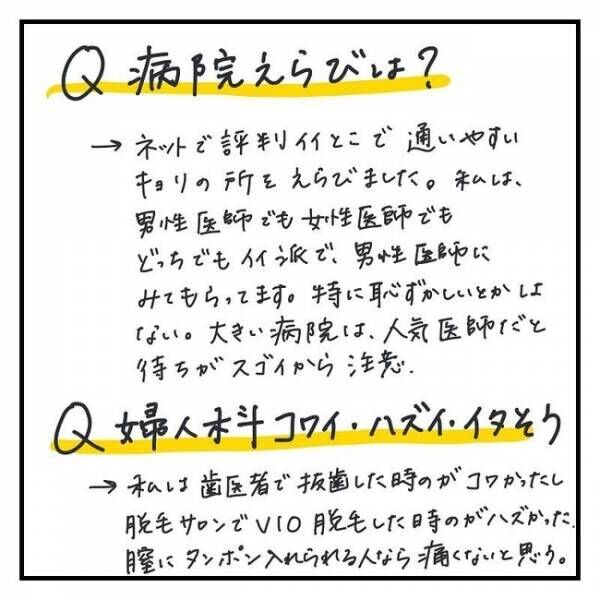 Q 病院えらびは?
→ ネットで評判イイとこで通いやすい
キョリの所をえらびました。私は、
男性医師でも女性医師でも
どっちでもイイ派で、男性医師に
みてもらってます。特に恥ずかしいとかは
ない。大きい病院は、人気医師だと
待ちがスゴイから注意.
Q 婦人科コワイ・ハズイ・イタそう
→ 私は歯医者で抜歯した時のがコワかったし
脱毛サロンでVIO脱毛した時のがハズかった.
膣にタンポン入れられる人なら痛くないと思う。